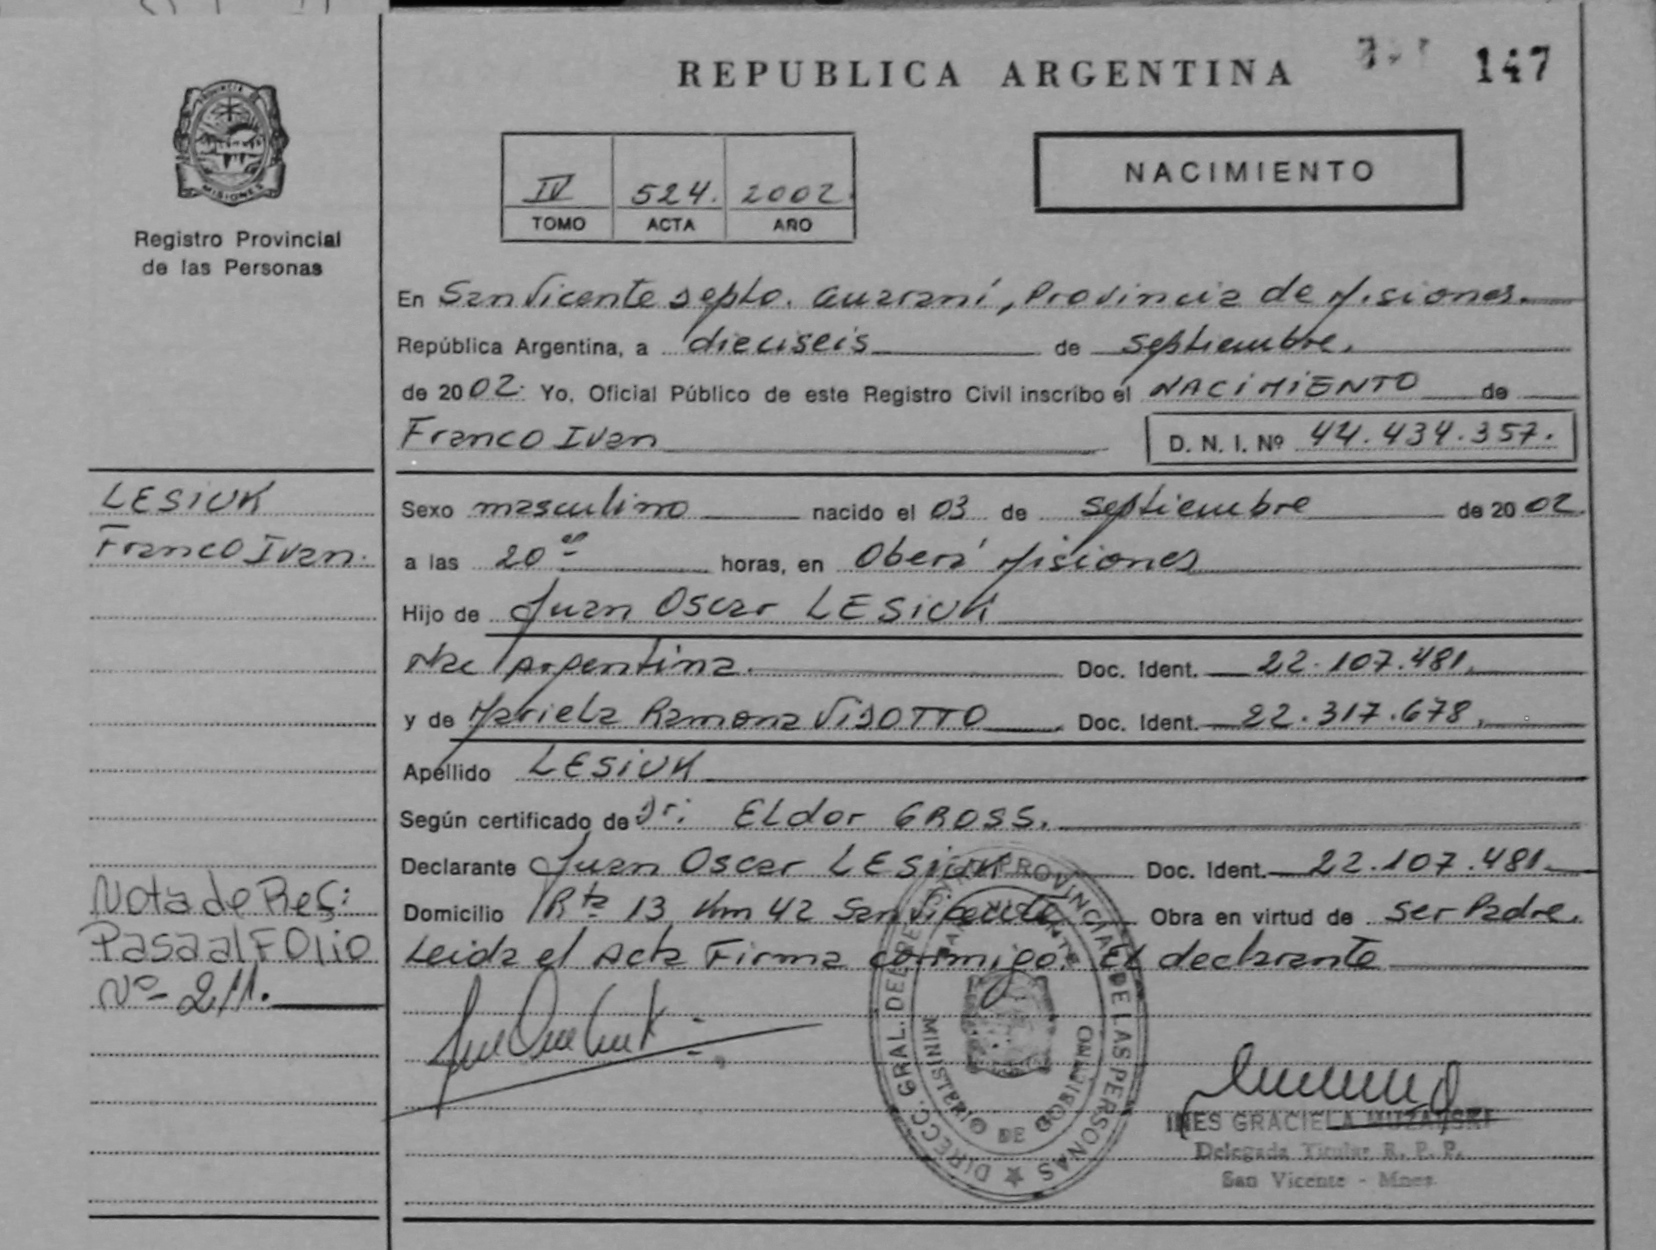 REPUBLICA ARGENTINA
147
PROVINCIA DE
MISIONES
Registro Provincial
de las Personas
IV 524. 2002.
TOMO ACTA AÑO
NACIMIENTO
En San Vicente Depto. Guaraní, Provincia de Misiones.
República Argentina, a dieciseis de septiembre.
de 2002: Yo, Oficial Público de este Registro Civil inscribo el NACIMIENTO de
Franco Ivan D. N. I. Nº 44.434.357.
LESIUK
Franco Ivan.
Sexo masculino nacido el 03 de septiembre de 2002.
a las 20 horas, en Oberá Misiones
Hijo de Juan Oscar LESIUK
Nac Argentina. Doc. Ident. 22.107.481.
y de Mariela Ramona VISOTTO Doc. Ident. 22.317.678.
Apellido LESIUK
Según certificado de Dr: Eldor GROSS.
Declarante Juan Oscar LESIUK Doc. Ident. 22.107.481.
Domicilio Rta 13 Km 42 San Vicente Obra en virtud de ser Padre.
Leida el Acta Firma conmigo. El declarante
Nota de Reg:
Pasa al FOlio
Nº- 211.
DIRECC. GRAL. DEL REG. PROVINCIAL DE LAS PERSONAS
SAN VICENTE
MINISTERIO DE GOBIERNO
INES GRACIELA MUZAUSKI
Delegada Titular R. P. P.
San Vicente - Mnes.